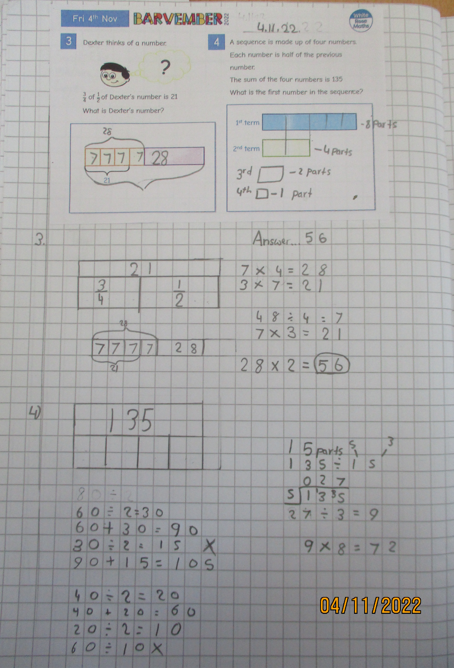 Fri 4th Nov BARVEMBER 2022
4.11.22
White Rose Maths
3 Dexter thinks of a number.
?
3/4 of 1/2 of Dexter's number is 21
What is Dexter's number?
28
7 7 7 7 28
21
4 A sequence is made up of four numbers.
Each number is half of the previous
number.
The sum of the four numbers is 135
What is the first number in the sequence?
1st term - 8 parts
2nd term - 4 parts
3rd - 2 parts
4th - 1 part
3.
Answer... 56
21
3/4 1/2
7 7 7 7 28
21
7 × 4 = 28
3 × 7 = 21
48 ÷ 4 = 7
7 × 3 = 21
28 × 2 = 56
4)
135
80 ÷ 2
60 ÷ 2 = 30
60 + 30 = 90
30 ÷ 2 = 15 X
90 + 15 = 105
40 ÷ 2 = 20
40 + 20 = 60
20 ÷ 2 = 10
60 ÷ 10 X
15 parts 5, 3
135 ÷ 15
027
5 1 3 35
27 ÷ 3 = 9
9 × 8 = 72
04/11/2022